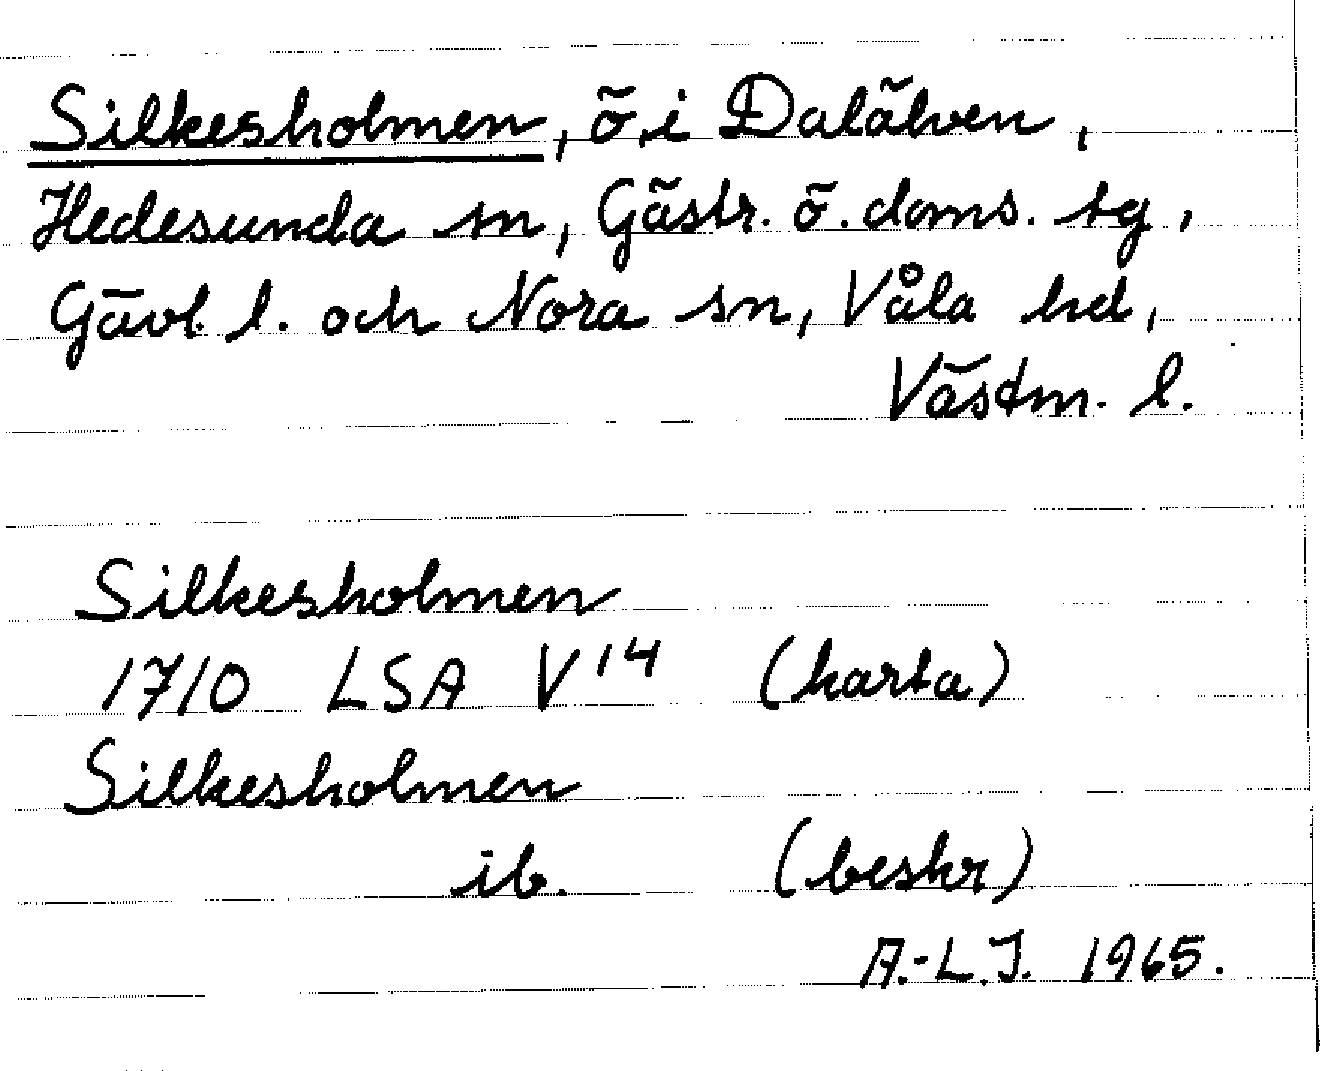 Silkesholmen, ö i Dalälven,
Hedesunda sn, Gästr. ö. doms. tg,
Gävl. l. och Nora sn, Våla hd,
Västm. l.
Silkesholmen
1710 LSA V 14 (karta)
Silkesholmen
ib. (beskr)
A.-L.J. 1965.